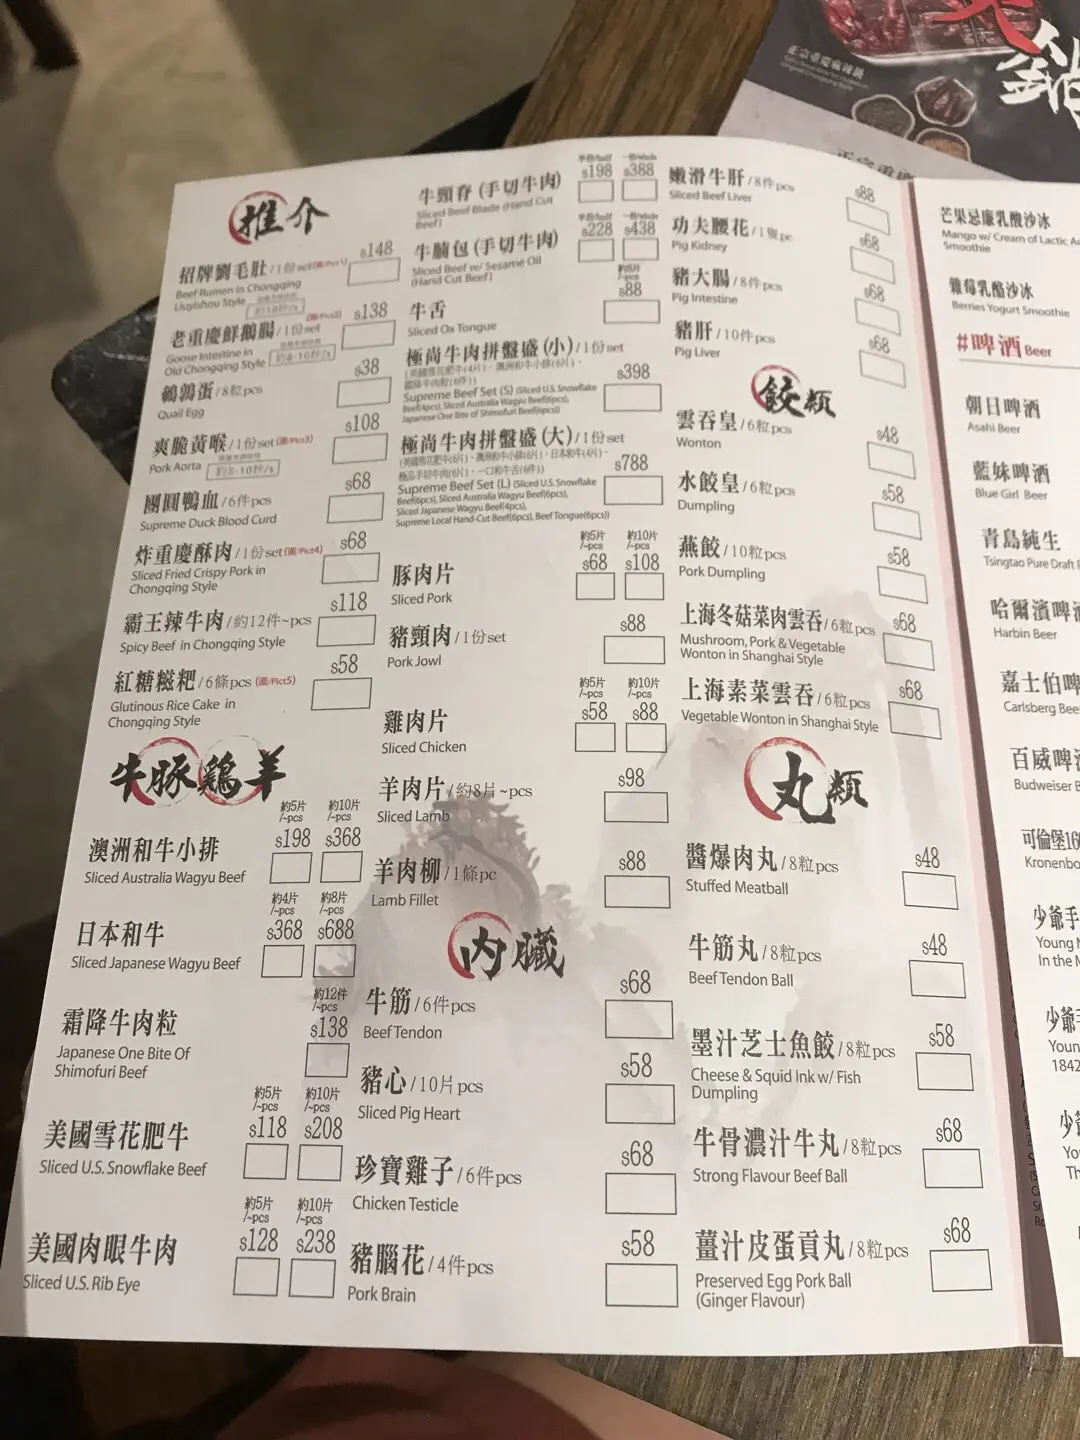 推介
招牌劉毛肚/1份set(圖/Pict1)
$148
Beef Rumen in Chongqing
Liuyishou Style
約10秒/s
老重慶鮮鵝腸/1份set
(圖/Pict2)
$138
Goose Intestine in
Old Chongqing Style
約8-10秒/s
鵪鶉蛋/8粒pcs
$38
Quail Egg
爽脆黃喉/1份set(圖/Pict3)
$108
Pork Aorta
約8-10秒/s
團圓鴨血/6件pcs
$68
Supreme Duck Blood Curd
炸重慶酥肉/1份set(圖/Pict4)
$68
Sliced Fried Crispy Pork in
Chongqing Style
霸王辣牛肉/約12件~pcs
$118
Spicy Beef in Chongqing Style
紅糖糍粑/6條pcs(圖/Pict5)
$58
Glutinous Rice Cake in
Chongqing Style
牛豚鶏羊
約5片/~pcs 約10片/~pcs
澳洲和牛小排
$198 $368
Sliced Australia Wagyu Beef
約4片/~pcs 約8片/~pcs
日本和牛
$368 $688
Sliced Japanese Wagyu Beef
約12件/~pcs
霜降牛肉粒
$138
Japanese One Bite Of
Shimofuri Beef
約5片/~pcs 約10片/~pcs
美國雪花肥牛
$118 $208
Sliced U.S. Snowflake Beef
約5片/~pcs 約10片/~pcs
美國肉眼牛肉
$128 $238
Sliced U.S. Rib Eye
半份/half 一份/whole
牛頸脊(手切牛肉)
$198 $388
Sliced Beef Blade (Hand Cut
Beef)
半份/half 一份/whole
牛腩包(手切牛肉)
$228 $438
Sliced Beef w/ Sesame Oil
(Hand Cut Beef)
約8片/~pcs
牛舌
$88
Sliced Ox Tongue
極尚牛肉拼盤盛(小)/1份set
(美國雪花肥牛(4片)、澳洲和牛小排(6片)、
霜降牛肉粒(6件))
$398
Supreme Beef Set (S) (Sliced U.S. Snowflake
Beef(4pcs), Sliced Australia Wagyu Beef(6pcs),
Japanese One Bite of Shimofuri Beef(6pcs))
極尚牛肉拼盤盛(大)/1份set
(美國雪花肥牛(6片)、澳洲和牛小排(6片)、日本和牛(4片)、
極品手切牛肉(6片)、一口和牛舌(6件))
$788
Supreme Beef Set (L) (Sliced U.S. Snowflake
Beef(6pcs), Sliced Australia Wagyu Beef(6pcs),
Sliced Japanese Wagyu Beef(4pcs),
Supreme Local Hand-Cut Beef(6pcs), Beef Tongue(6pcs))
約5片/~pcs 約10片/~pcs
豚肉片
$68 $108
Sliced Pork
豬頸肉/1份set
$88
Pork Jowl
約5片/~pcs 約10片/~pcs
雞肉片
$58 $88
Sliced Chicken
羊肉片/約8片~pcs
$98
Sliced Lamb
羊肉柳/1條pc
$88
Lamb Fillet
內臟
牛筋/6件pcs
$68
Beef Tendon
豬心/10片pcs
$58
Sliced Pig Heart
珍寶雞子/6件pcs
$68
Chicken Testicle
豬腦花/4件pcs
$58
Pork Brain
嫩滑牛肝/8件pcs
$88
Sliced Beef Liver
功夫腰花/1隻pc
$68
Pig Kidney
豬大腸/8件pcs
$68
Pig Intestine
豬肝/10件pcs
$68
Pig Liver
餃類
雲吞皇/6粒pcs
$48
Wonton
水餃皇/6粒pcs
$58
Dumpling
燕餃/10粒pcs
$58
Pork Dumpling
上海冬菇菜肉雲吞/6粒pcs
$68
Mushroom, Pork & Vegetable
Wonton in Shanghai Style
上海素菜雲吞/6粒pcs
$68
Vegetable Wonton in Shanghai Style
丸類
醬爆肉丸/8粒pcs
$48
Stuffed Meatball
牛筋丸/8粒pcs
$48
Beef Tendon Ball
墨汁芝士魚餃/8粒pcs
$58
Cheese & Squid Ink w/ Fish
Dumpling
牛骨濃汁牛丸/8粒pcs
$68
Strong Flavour Beef Ball
薑汁皮蛋貢丸/8粒pcs
$68
Preserved Egg Pork Ball
(Ginger Flavour)
芒果忌廉乳酸沙冰
Mango w/ Cream of Lactic
Smoothie
雜莓乳酪沙冰
Berries Yogurt Smoothie
#啤酒 Beer
朝日啤酒
Asahi Beer
藍妹啤酒
Blue Girl Beer
青島純生
Tsingtao Pure Draft
哈爾濱啤酒
Harbin Beer
嘉士伯啤
Carlsberg
百威啤
Budweiser
可倫堡
少爺手
Young
In the
少爺
1842
少爺
鍋
正宗重慶麻辣鍋